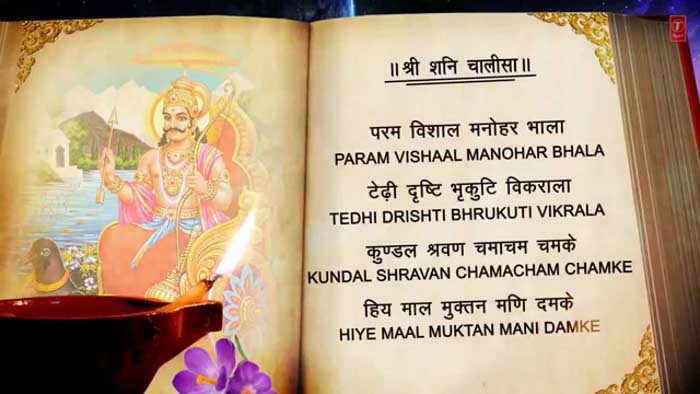 ॥ श्री शनि चालीसा ॥
परम विशाल मनोहर भाला
PARAM VISHAAL MANOHAR BHALA
टेढ़ी दृष्टि भृकुटि विकराला
TEDHI DRISHTI BHRUKUTI VIKRALA
कुण्डल श्रवण चमाचम चमके
KUNDAL SHRAVAN CHAMACHAM CHAMKE
हिय माल मुक्तन मणि दमके
HIYE MAAL MUKTAN MANI DAMKE